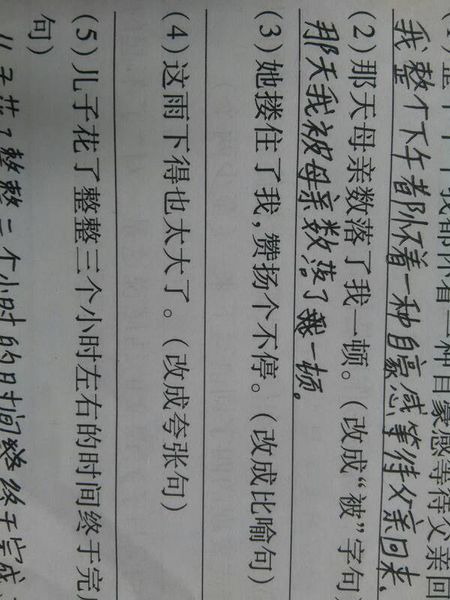 (1)整个下午我都怀着一种自豪感等待父亲回
我整个下午都怀着一种自豪感等待父亲回来.
(2)那天母亲数落了我一顿。(改成“被”字句)
那天我被母亲数落了一顿。
(3)她搂住了我,赞扬个不停。(改成比喻句)
(4)这雨下得也太大了。(改成夸张句)
(5)儿子花了整整三个小时左右的时间终于完
句)
儿子花了整整三个小时的时间终于完成